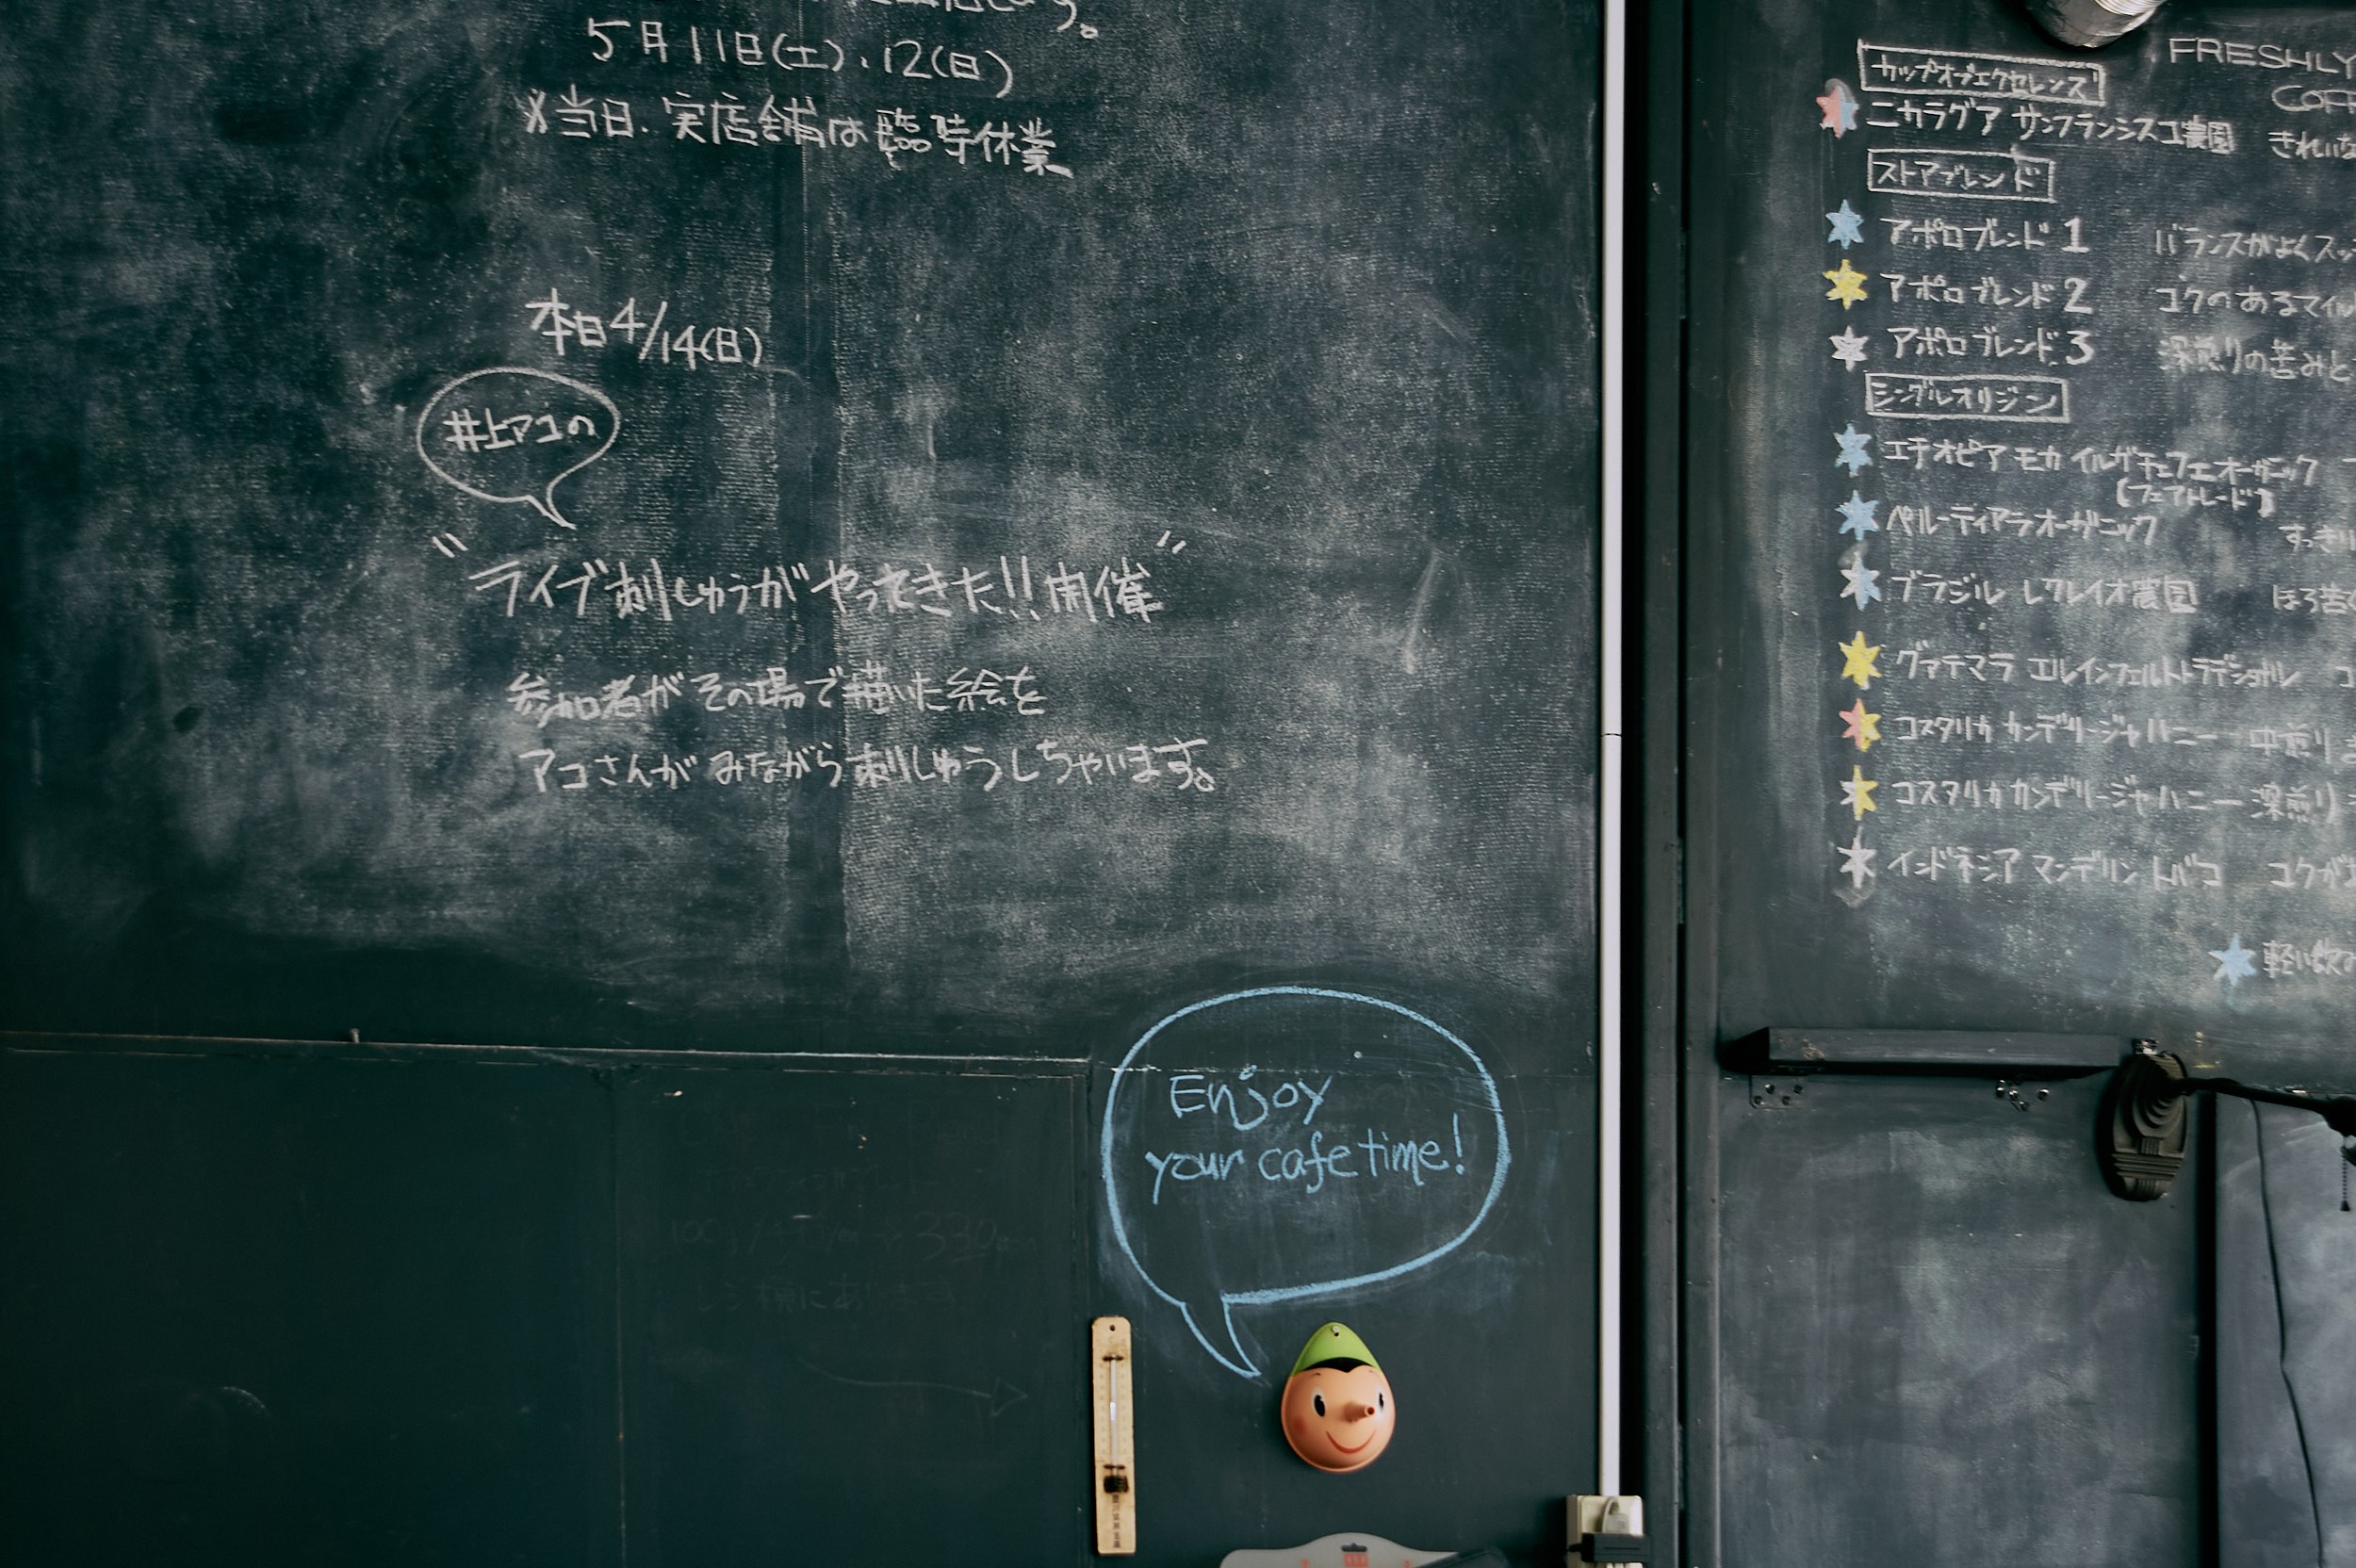 5月11日(土)、12(日)
※当日、実店舗は臨時休業
本日4/14(日)
井上アコの
"ライブ刺しゅうがやってきた!!開催"
参加者がその場で描いた絵を
アコさんがみながら刺しゅうしちゃいます。
Enjoy
your cafe time!
FRESHLY
カップオブエクセレンス
ニカラグア サンフランシスコ農園 きれいな
ストアブレンド
アポロブレンド 1 バランスがよくスッ
アポロブレンド 2 コクのあるマイル
アポロブレンド 3 深煎りの苦みと
シングルオリジン
エチオピア モカ イルガチェフェオーガニック
(フェアトレード)
ペルーティアラオーガニック すっきり
ブラジル レクレイオ農園 ほろ苦く
グァテマラ エルインフェルトトラディショナル コ
コスタリカ カンデリージャハニー 中煎り
コスタリカ カンデリージャハニー 深煎り
インドネシア マンデリン トバコ コクが
軽い飲み